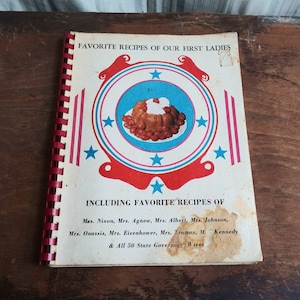 FAVORITE RECIPES OF OUR FIRST LADIES
INCLUDING FAVORITE RECIPES OF
Mrs. Nixon, Mrs. Agnew, Mrs. Albert, Mrs. Johnson,
Mrs. Onassis, Mrs. Eisenhower, Mrs. Truman, M Kennedy
& All 50 State Governors' Wives